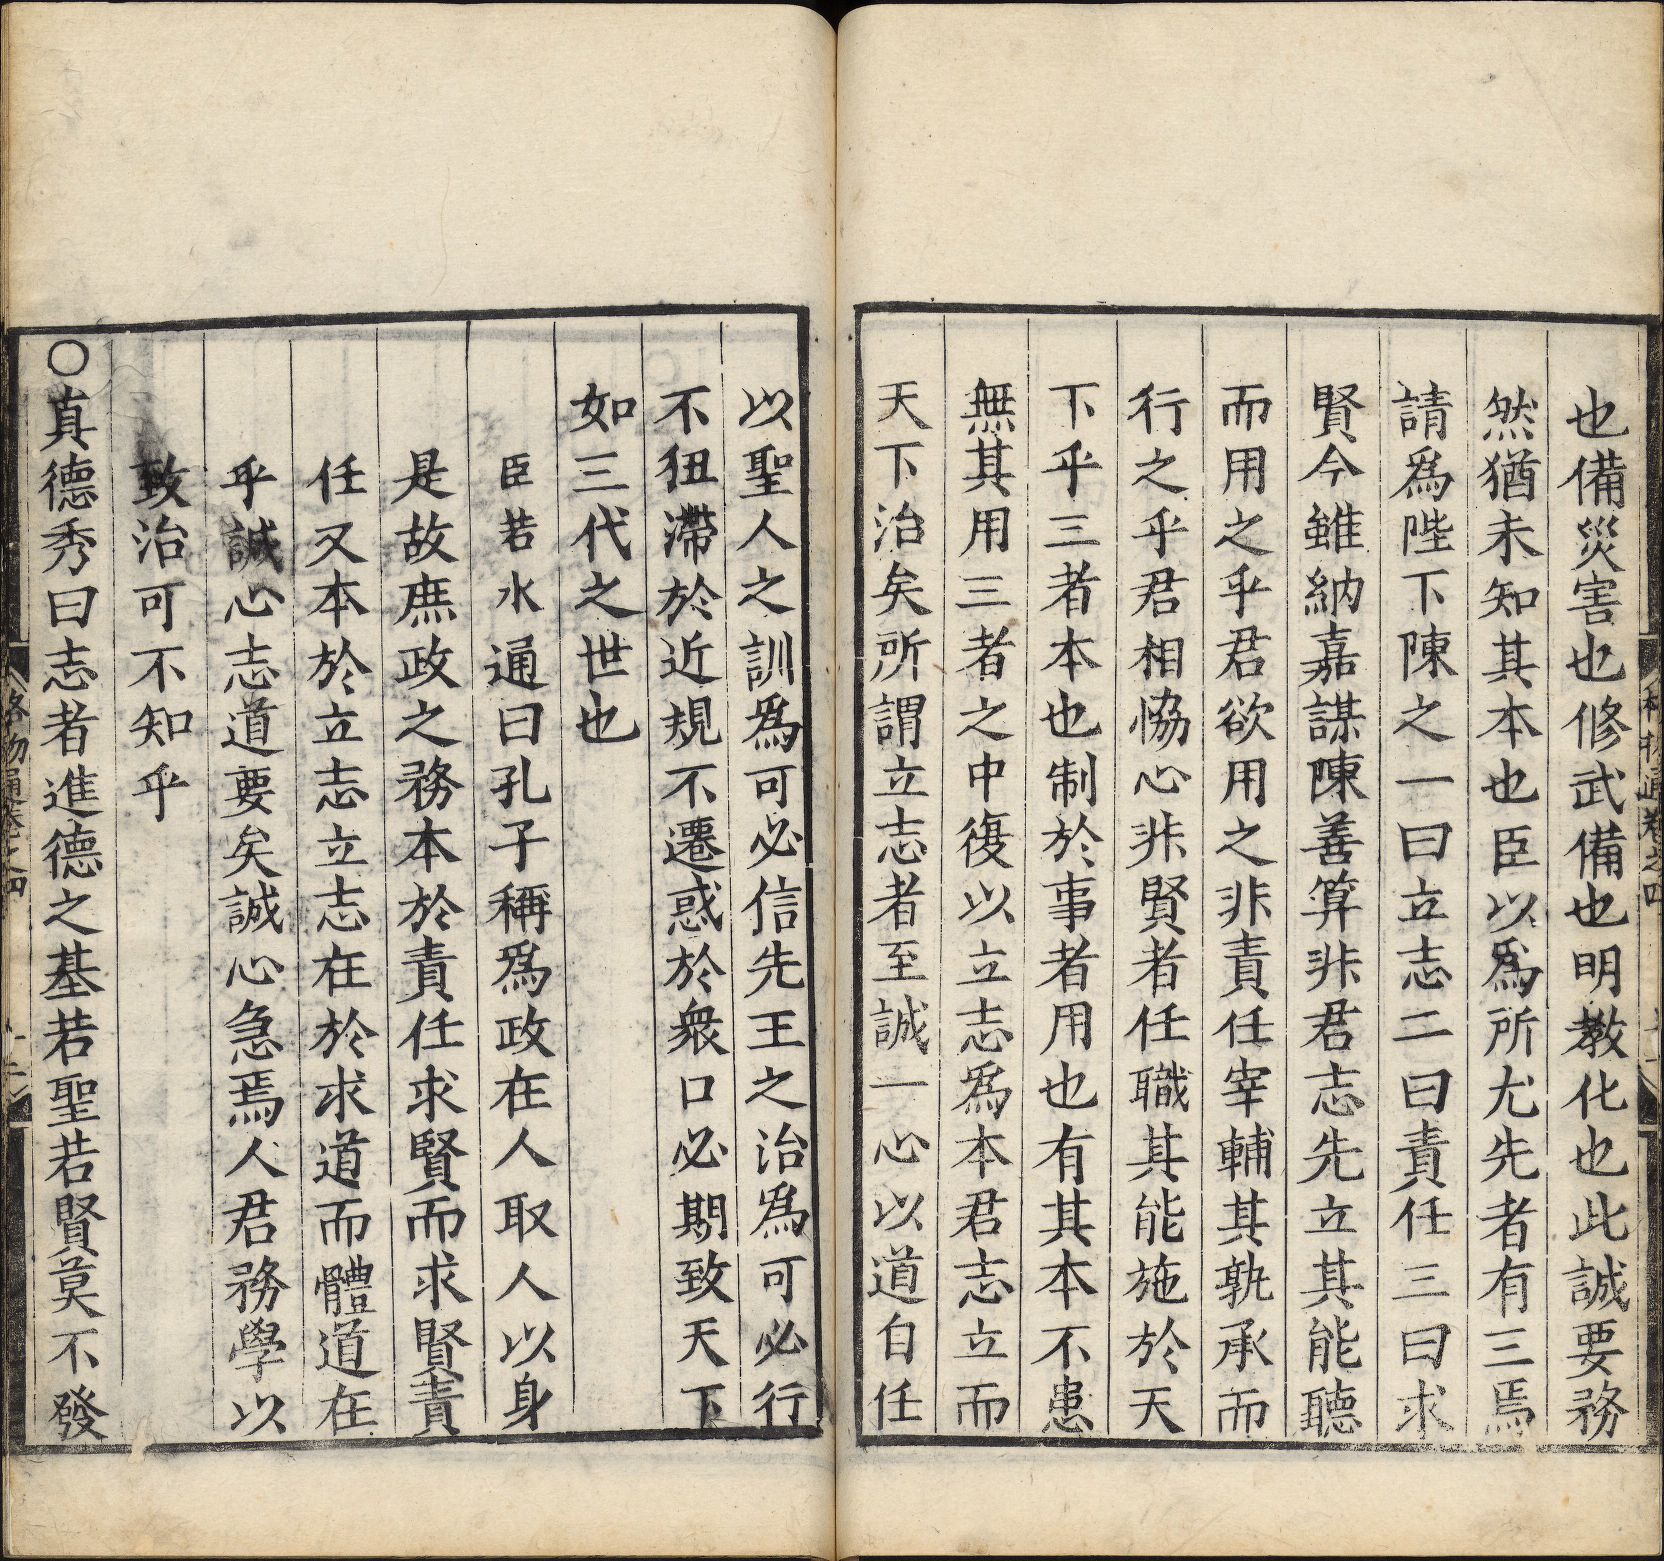 也備災害也修武備也明教化也此誠要務
然猶未知其本也臣以爲所尤先者有三焉
請爲陛下陳之一曰立志二曰責任三曰求
賢今雖納嘉謀陳善算非君志先立其能聽
而用之乎君欲用之非責任宰輔其孰承而
行之乎君相恊心非賢者任職其能施於天
下乎三者本也制於事者用也有其本不患
無其用三者之中復以立志爲本君志立而
天下治矣所謂立志者至誠一心以道自任
以聖人之訓爲可必信先王之治爲可必行
不狃滯於近規不遷惑於衆口必期致天下
如三代之世也
臣若水通曰孔子稱爲政在人取人以身
是故庶政之務本於責任求賢而求賢責
任又本於立志立志在於求道而體道在
乎誠心志道要矣誠心急焉人君務學以
致治可不知乎
○真德秀曰志者進德之基若聖若賢莫不發
格物通卷之四